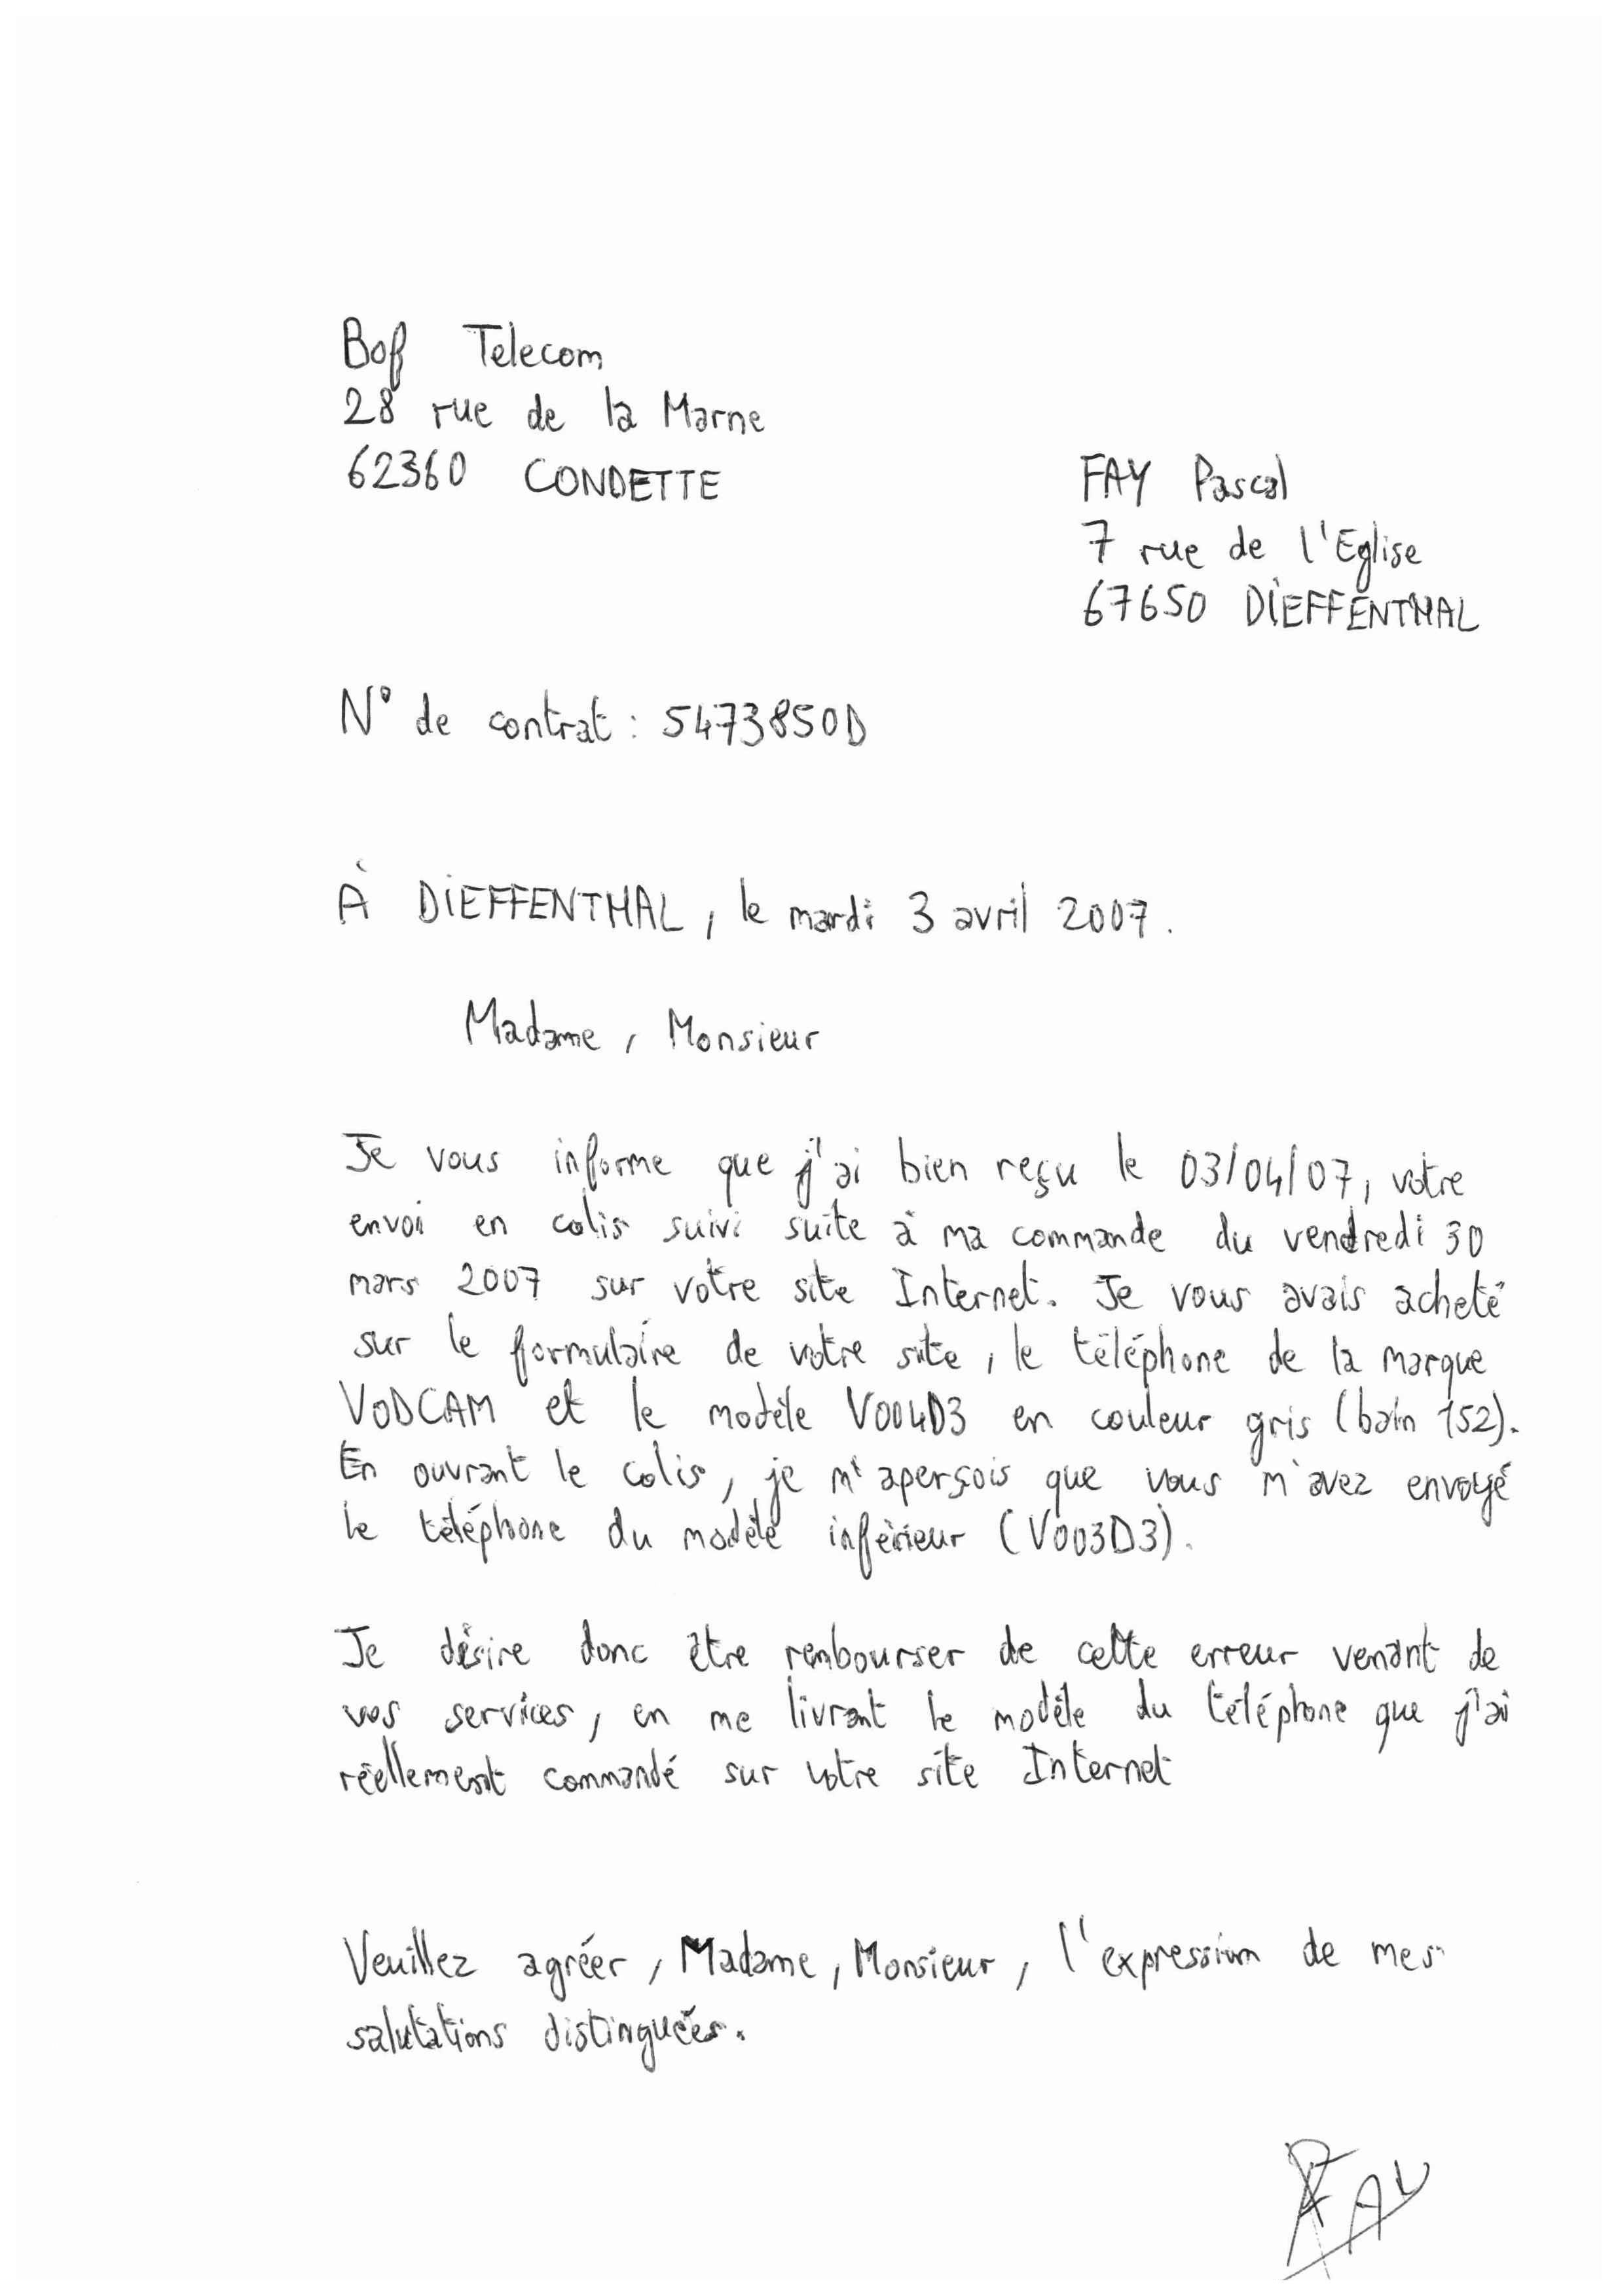 Bof Telecom
28 rue de la Marne
62360 CONDETTE
FAY Pascal
7 rue de l'Eglise
67650 DIEFFENTHAL
N° de contrat : 5473850D
À DIEFFENTHAL, le mardi 3 avril 2007.
Madame, Monsieur
Je vous informe que j'ai bien reçu le 03/04/07, votre
envoi en colis suivi suite à ma commande du vendredi 30
mars 2007 sur votre site Internet. Je vous avais acheté
sur le formulaire de votre site, le téléphone de la marque
VODCAM et le modèle V004D3 en couleur gris (bain 152).
En ouvrant le colis, je m'aperçois que vous m'avez envoyé
le téléphone du modèle inférieur (V003D3).
Je désire donc être rembourser de cette erreur venant de
vos services, en me livrant le modèle du téléphone que j'ai
réellement commandé sur votre site Internet
Veuillez agréer, Madame, Monsieur, l'expression de mes
salutations distinguées.
FAY